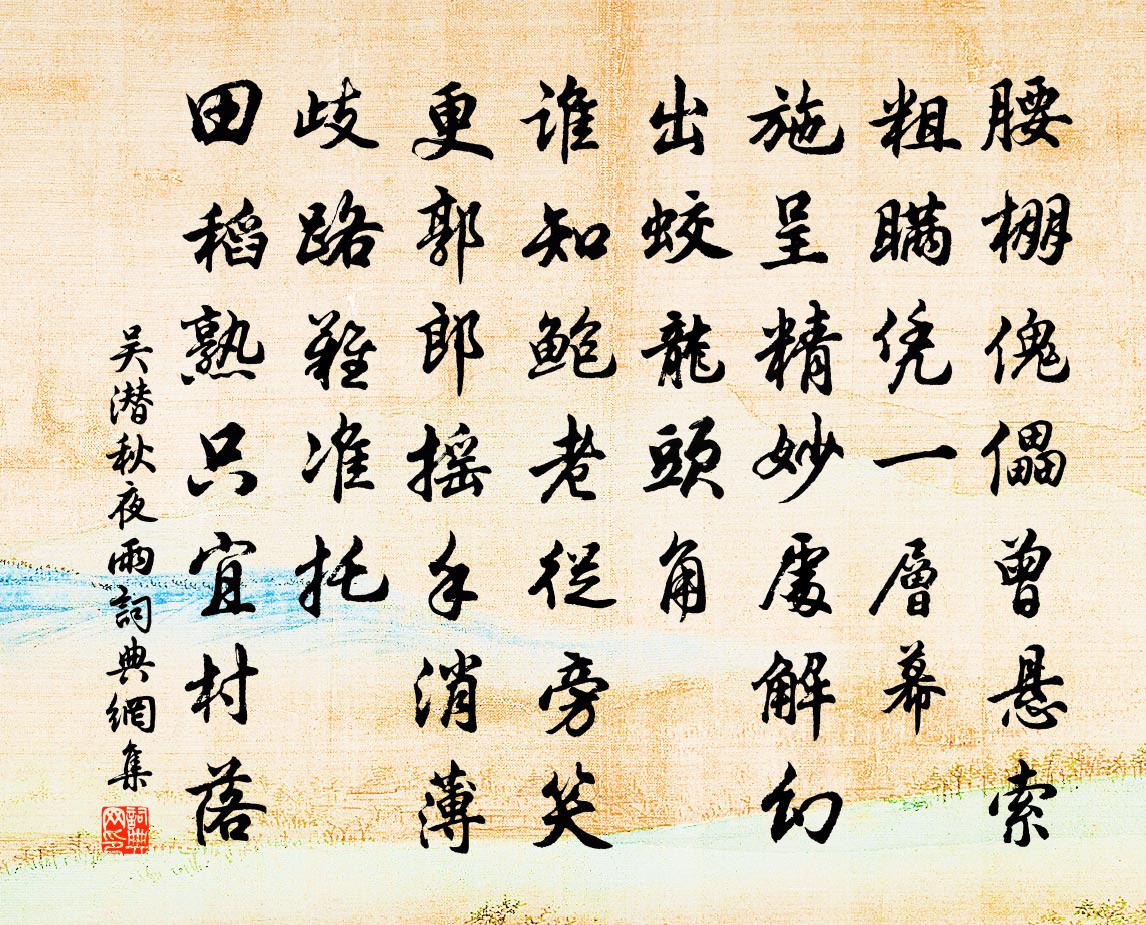 腰棚傀儡曾悬索
粗瞒凭一層幕
施呈精妙處解幻
出蛟龍頭角
谁知鲍老從旁笑
更郭郎摇手消薄
歧路難准托
田稻熟只宜村落
吴潜秋夜雨詞典網集
詞典网印